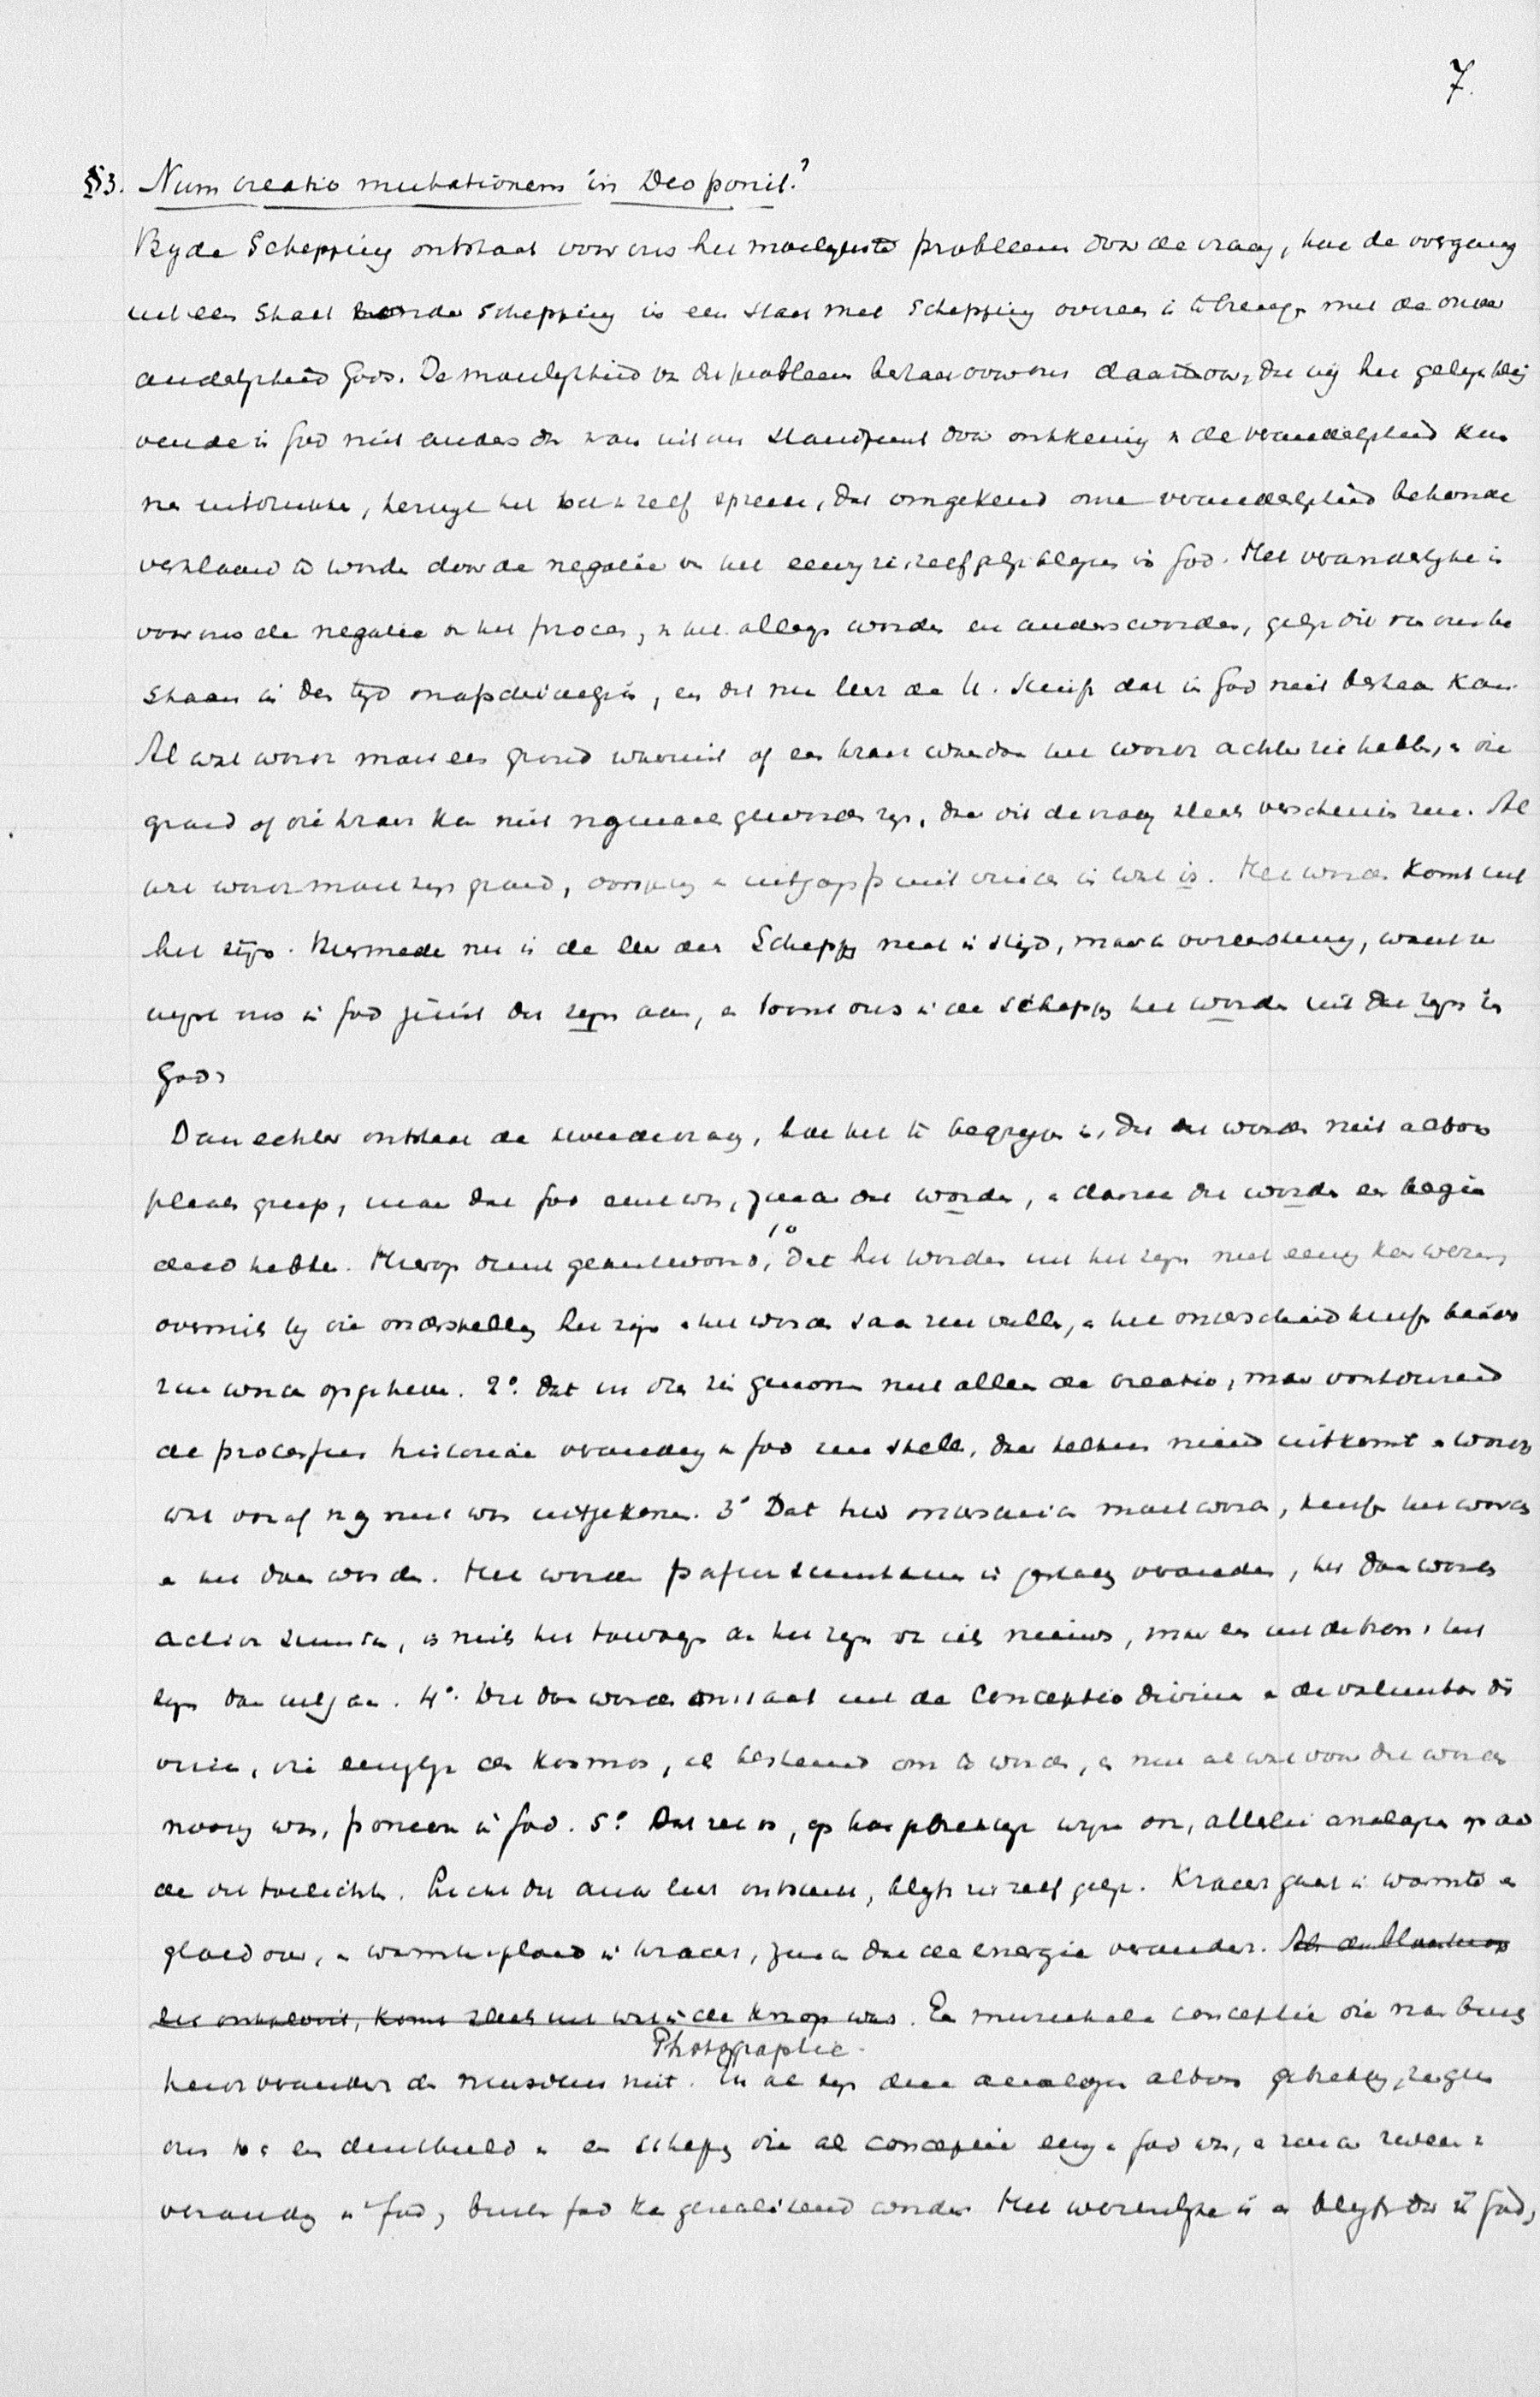 7.
§3. Num creatio mutationem in Deo ponit?
By de Schepping ontstaat voor ons het moeilykste probleem door de vraag, hoe de overgang
uit een staat zonder Schepping in een staat met Schepping overeen is te brengen met de onver
anderlykheid Gods. De moeilykheid van dit probleem bestaat voor ons daardoor, dat wij het gelyk bly
vende in God niet anders dan van uit ons standpunt door ontkenning van de veranderlykheid kun
nen uitdrukken, terwyl het van zelf spreekt, dat omgekeerd onze veranderlykheid behoorde
verklaard te worden door de negatie van het eeuwig zich zelf gelyk blyven in God. Het onveranderlyke is
voor ons de negatie van het proces, van het allengs worden en anders worden, gelyk dit van ons be
staan in den tyd onafscheidelyk is, en dit nu leert de H. Schrift dat in God niet bestaan kan.
Al wat wordt moet een grond waaruit of een kracht waardoor het wordt achter zich hebben, en die
grond of die kracht kan niet nogmaals geworden zyn, daar dit de vraag slechts verschuiven zou. Al
wat wordt moet zyn grond, oorsprong en uitgangspunt vinden in wat is. Het worden komt uit
het zyn. Hiermede nu is de leer der Schepping niet in stryd, maar in overeenstemming, want ze
wyst ons in God juist dat zyn aan, en toont ons in de schepping het worden uit dat zyn in
God.
Dan echter ontstaat de tweede vraag, hoe het te begrypen is, dat dit worden niet altoos
plaats greep, maar dat God eerst was, zonder dat worden, en daarna dit worden een begin
deed hebben. Hierop dient geantwoord, 1º Dat het worden uit het zyn niet eeuwig kan wezen,
overmits by die onderstelling het zyn en het worden saam zou vallen, en het onderscheid tusschen beiden
zou worden opgeheven. 2º. Dat in dien zin genomen niet alleen de creatio, maar voortdurend
de processus historiae verandering in God zou stellen, daar telkens nieuw uitkomt en wordt
wat vooraf nog niet was uitgekomen. 3º Dat hier onderscheiden moet worden, tusschen het worden
en het doen worden. Het worden passieve sumtum is gestadig veranderen, het doen worden
active sumtum, is niet het toevoegen aan het zyn van iets nieuws, maar een uit de bron van het
zyn doen uitgaan. 4º. Dit doen worden ontstaat uit de Conceptio divina en de voluntas di
vina, die eeuwiglyk den Kosmos, als bestemd om te worden, en met al wat voor dit worden
noodig was, poneeren in God. 5º. Dat zelfs, op hoe gebrekkige wyze ook, allerlei analogie op aar
de dit toelicht. Licht dat ander licht ontsteekt, blyft zich zelf gelyk. Kracht gaat in warmte en
gloed over, en warmte en gloed in kracht, zonder dat de energie verandert. Als de bloemknop
zich ontplooit, komt slechts uit wat in de knop was. Een muzikale conceptie die naar buiten
Photographie.
treedt verandert den musicus niet. En al zyn deze analogieën altoos gebrekkig, ze geven
ons toch een denkbeeld van een schepping die als conceptie eeuwig in God was, en zonder zweem van
verandering in God, buiten God kan gerealiseerd worden. Het wezenlyke is en blyft dan in God,